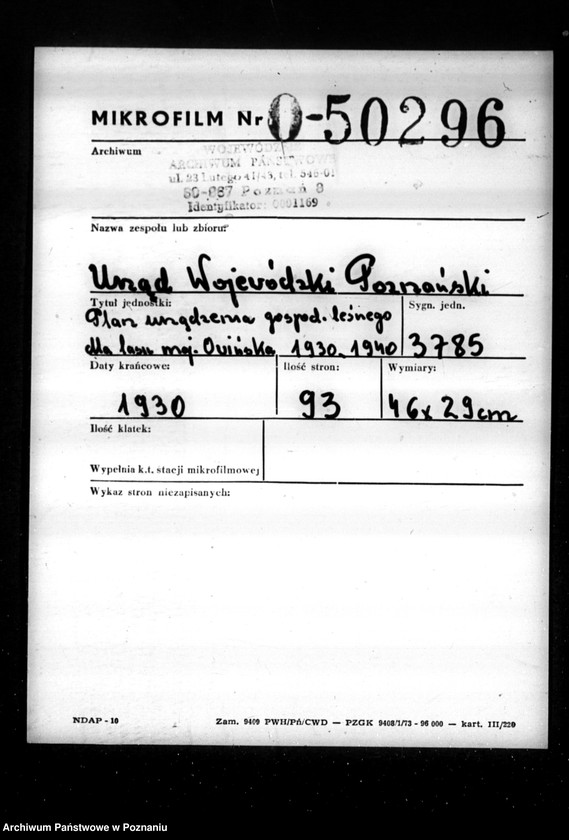 MIKROFILM Nr O-50296
Archiwum
WOJEWÓDZKIE
ARCHIWUM PAŃSTWOWE
ul. 23 Lutego 41/43, tel. 546-01
60-967 Poznań 9
Identyfikator: 0001169
Nazwa zespołu lub zbioru:
Urząd Wojewódzki Poznański
Tytuł jednostki:
Sygn. jedn.
Plan urządzenia gospod. leśnego
dla lasu maj. Owińska 1930-1940
3785
Daty krańcowe:
Ilość stron:
Wymiary:
1930
93
46x29cm
Ilość klatek:
Wypełnia k.t. stacji mikrofilmowej
Wykaz stron niezapisanych:
NDAP - 10
Zam. 9409 PWH/Pń/CWD — PZGK 9408/1/73 - 96 000 — kart. III/220
Archiwum Państwowe w Poznaniu